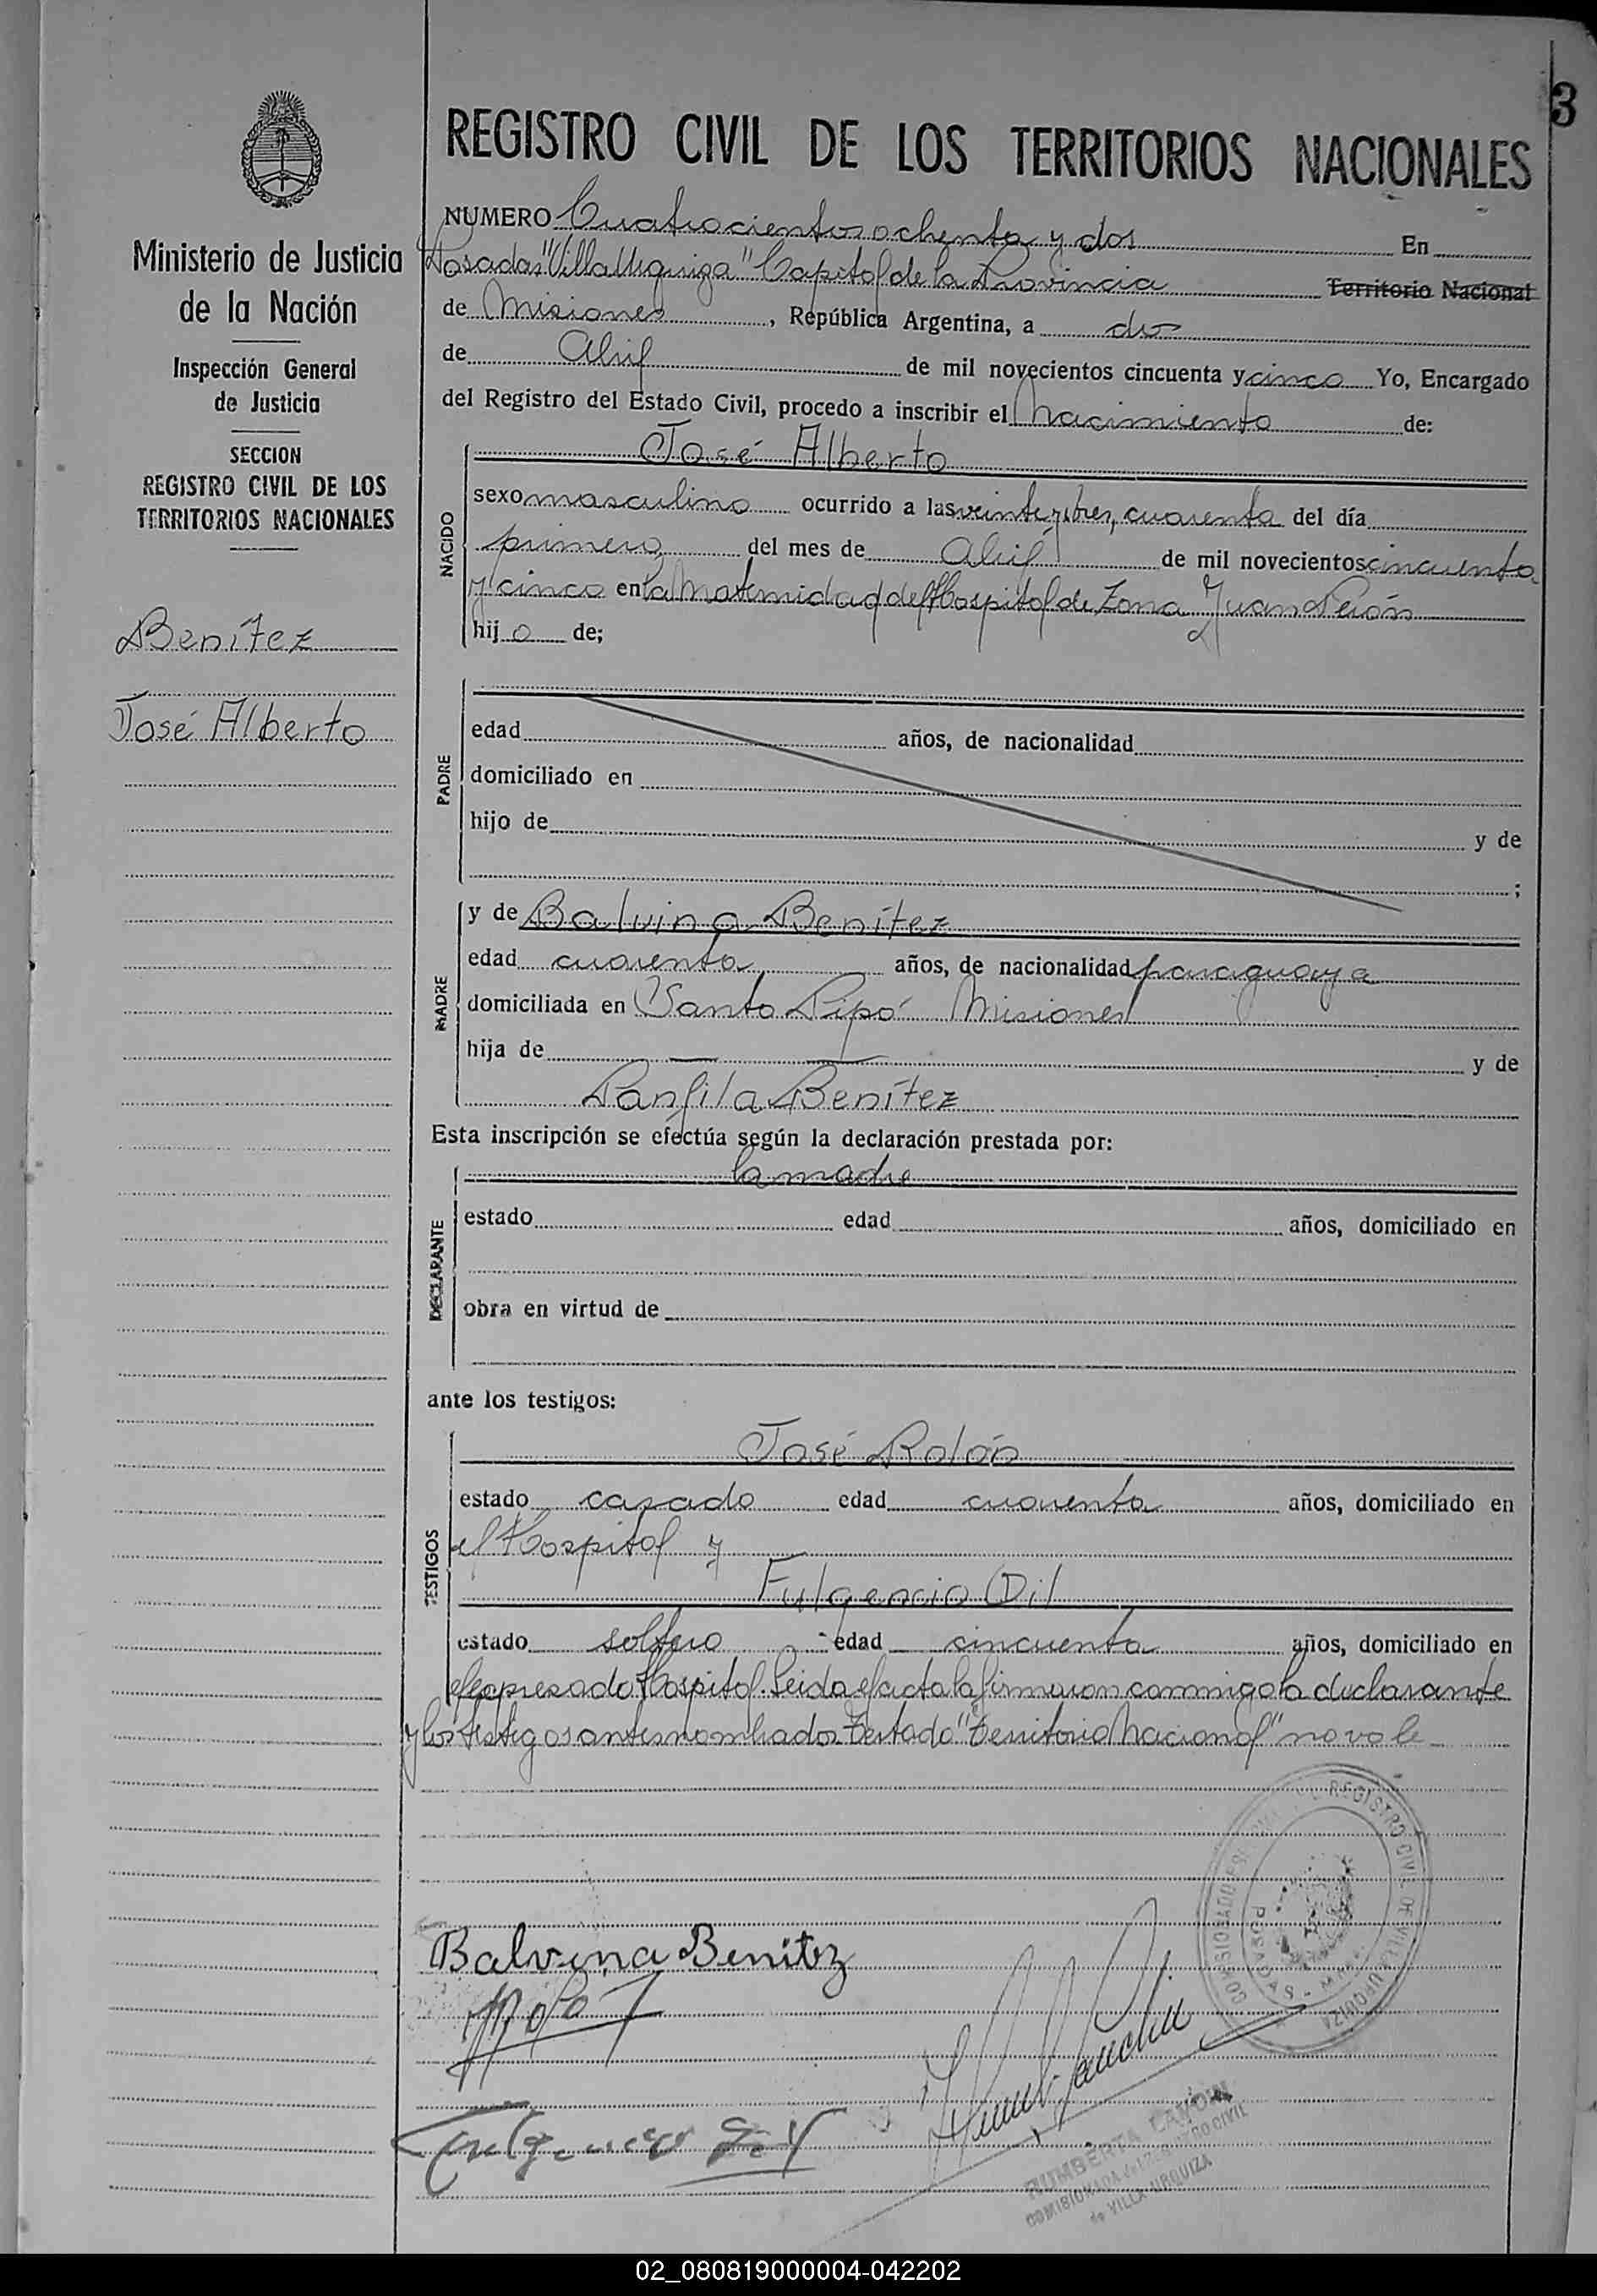 3
Ministerio de Justicia
de la Nación
Inspección General
de Justicia
SECCION
REGISTRO CIVIL DE LOS
TERRITORIOS NACIONALES
Benítez
José Alberto
REGISTRO CIVIL DE LOS TERRITORIOS NACIONALES
NUMERO Cuatrocientos ochenta y dos En
Posadas "Villa Urquiza" Capital de la Provincia Territorio Nacional
de Misiones, República Argentina, a dos
de Abril de mil novecientos cincuenta y cinco Yo, Encargado
del Registro del Estado Civil, procedo a inscribir el Nacimiento de:
NACIDO
José Alberto
sexo masculino ocurrido a las veinte y tres, cuarenta del día
primero del mes de Abril de mil novecientos cincuenta
y cinco en la Maternidad del Hospital de Zona Juan Perón
hijo de;
PADRE
edad años, de nacionalidad
domiciliado en
hijo de y de
;
MADRE
y de Balvina Benítez
edad cuarenta años, de nacionalidad paraguaya
domiciliada en Santo Pipó Misiones
hija de — — y de
Panfila Benítez
Esta inscripción se efectúa según la declaración prestada por:
DECLARANTE
la madre
estado edad años, domiciliado en
obra en virtud de
ante los testigos:
TESTIGOS
José Rolón
estado casado edad cuarenta años, domiciliado en
el Hospital y
Fulgencio Dil
estado soltero edad cincuenta años, domiciliado en
el expresado Hospital. Leida el acta la firmaron conmigo la declarante
y los testigos antes nombrados. Testado "Territorio Nacional" no vale
Balvina Benitez
REGISTRO CIVIL DE VILLA URQUIZA
POSADAS
COMISIONADA del REGISTRO CIVIL
de VILLA URQUIZA
02_080819000004-042202